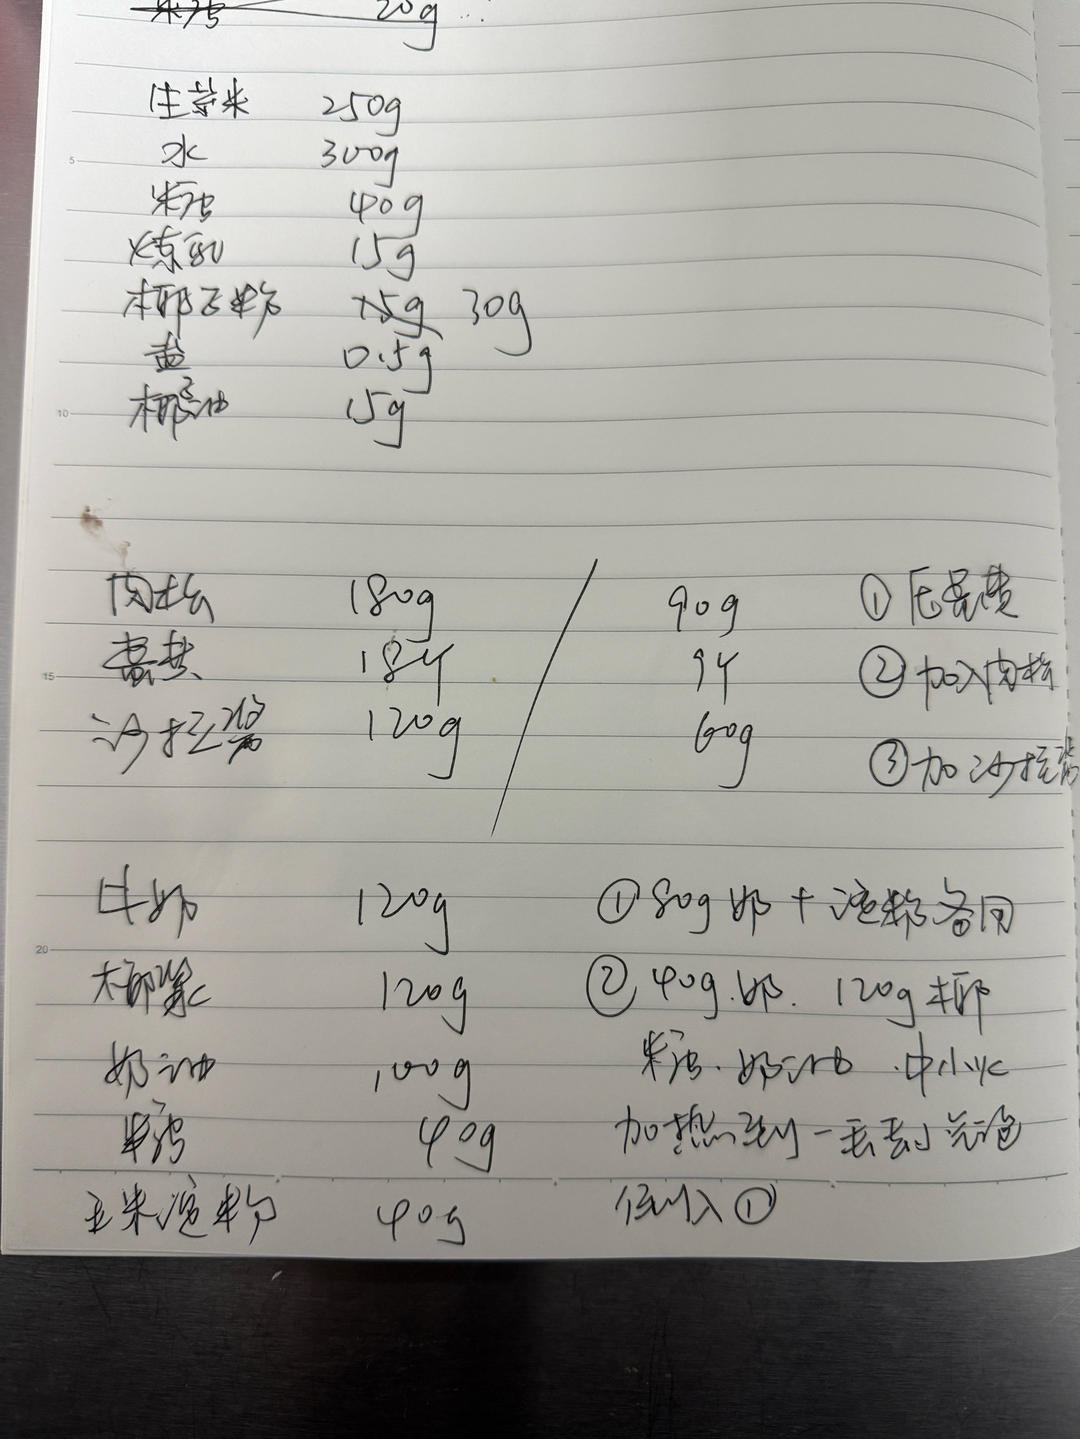 糖 20g
生芋米 250g
水 300g
糖 40g
炼乳 15g
椰子粉 15g 30g
盐 0.5g
椰油 15g
肉松 180g / 90g ① 压蛋黄
蛋黄 18个 9个 ② 加入肉松
沙拉酱 120g 60g ③ 加沙拉酱
牛奶 120g ① 80g奶+淀粉备用
椰浆 120g ② 40g.奶. 120g椰
奶油 100g 糖.奶油.中小火
糖 40g 加热到一丢丢小气泡
玉米淀粉 40g 倒入①